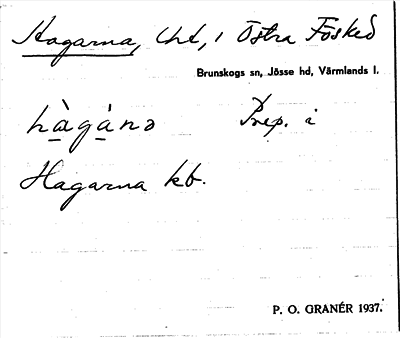 Hagarna, lht, i Östra Fösked
Brunskogs sn, Jösse hd, Värmlands l.
hàgànə Prep. i
Hagarna kb.
P. O. GRANÉR 1937.